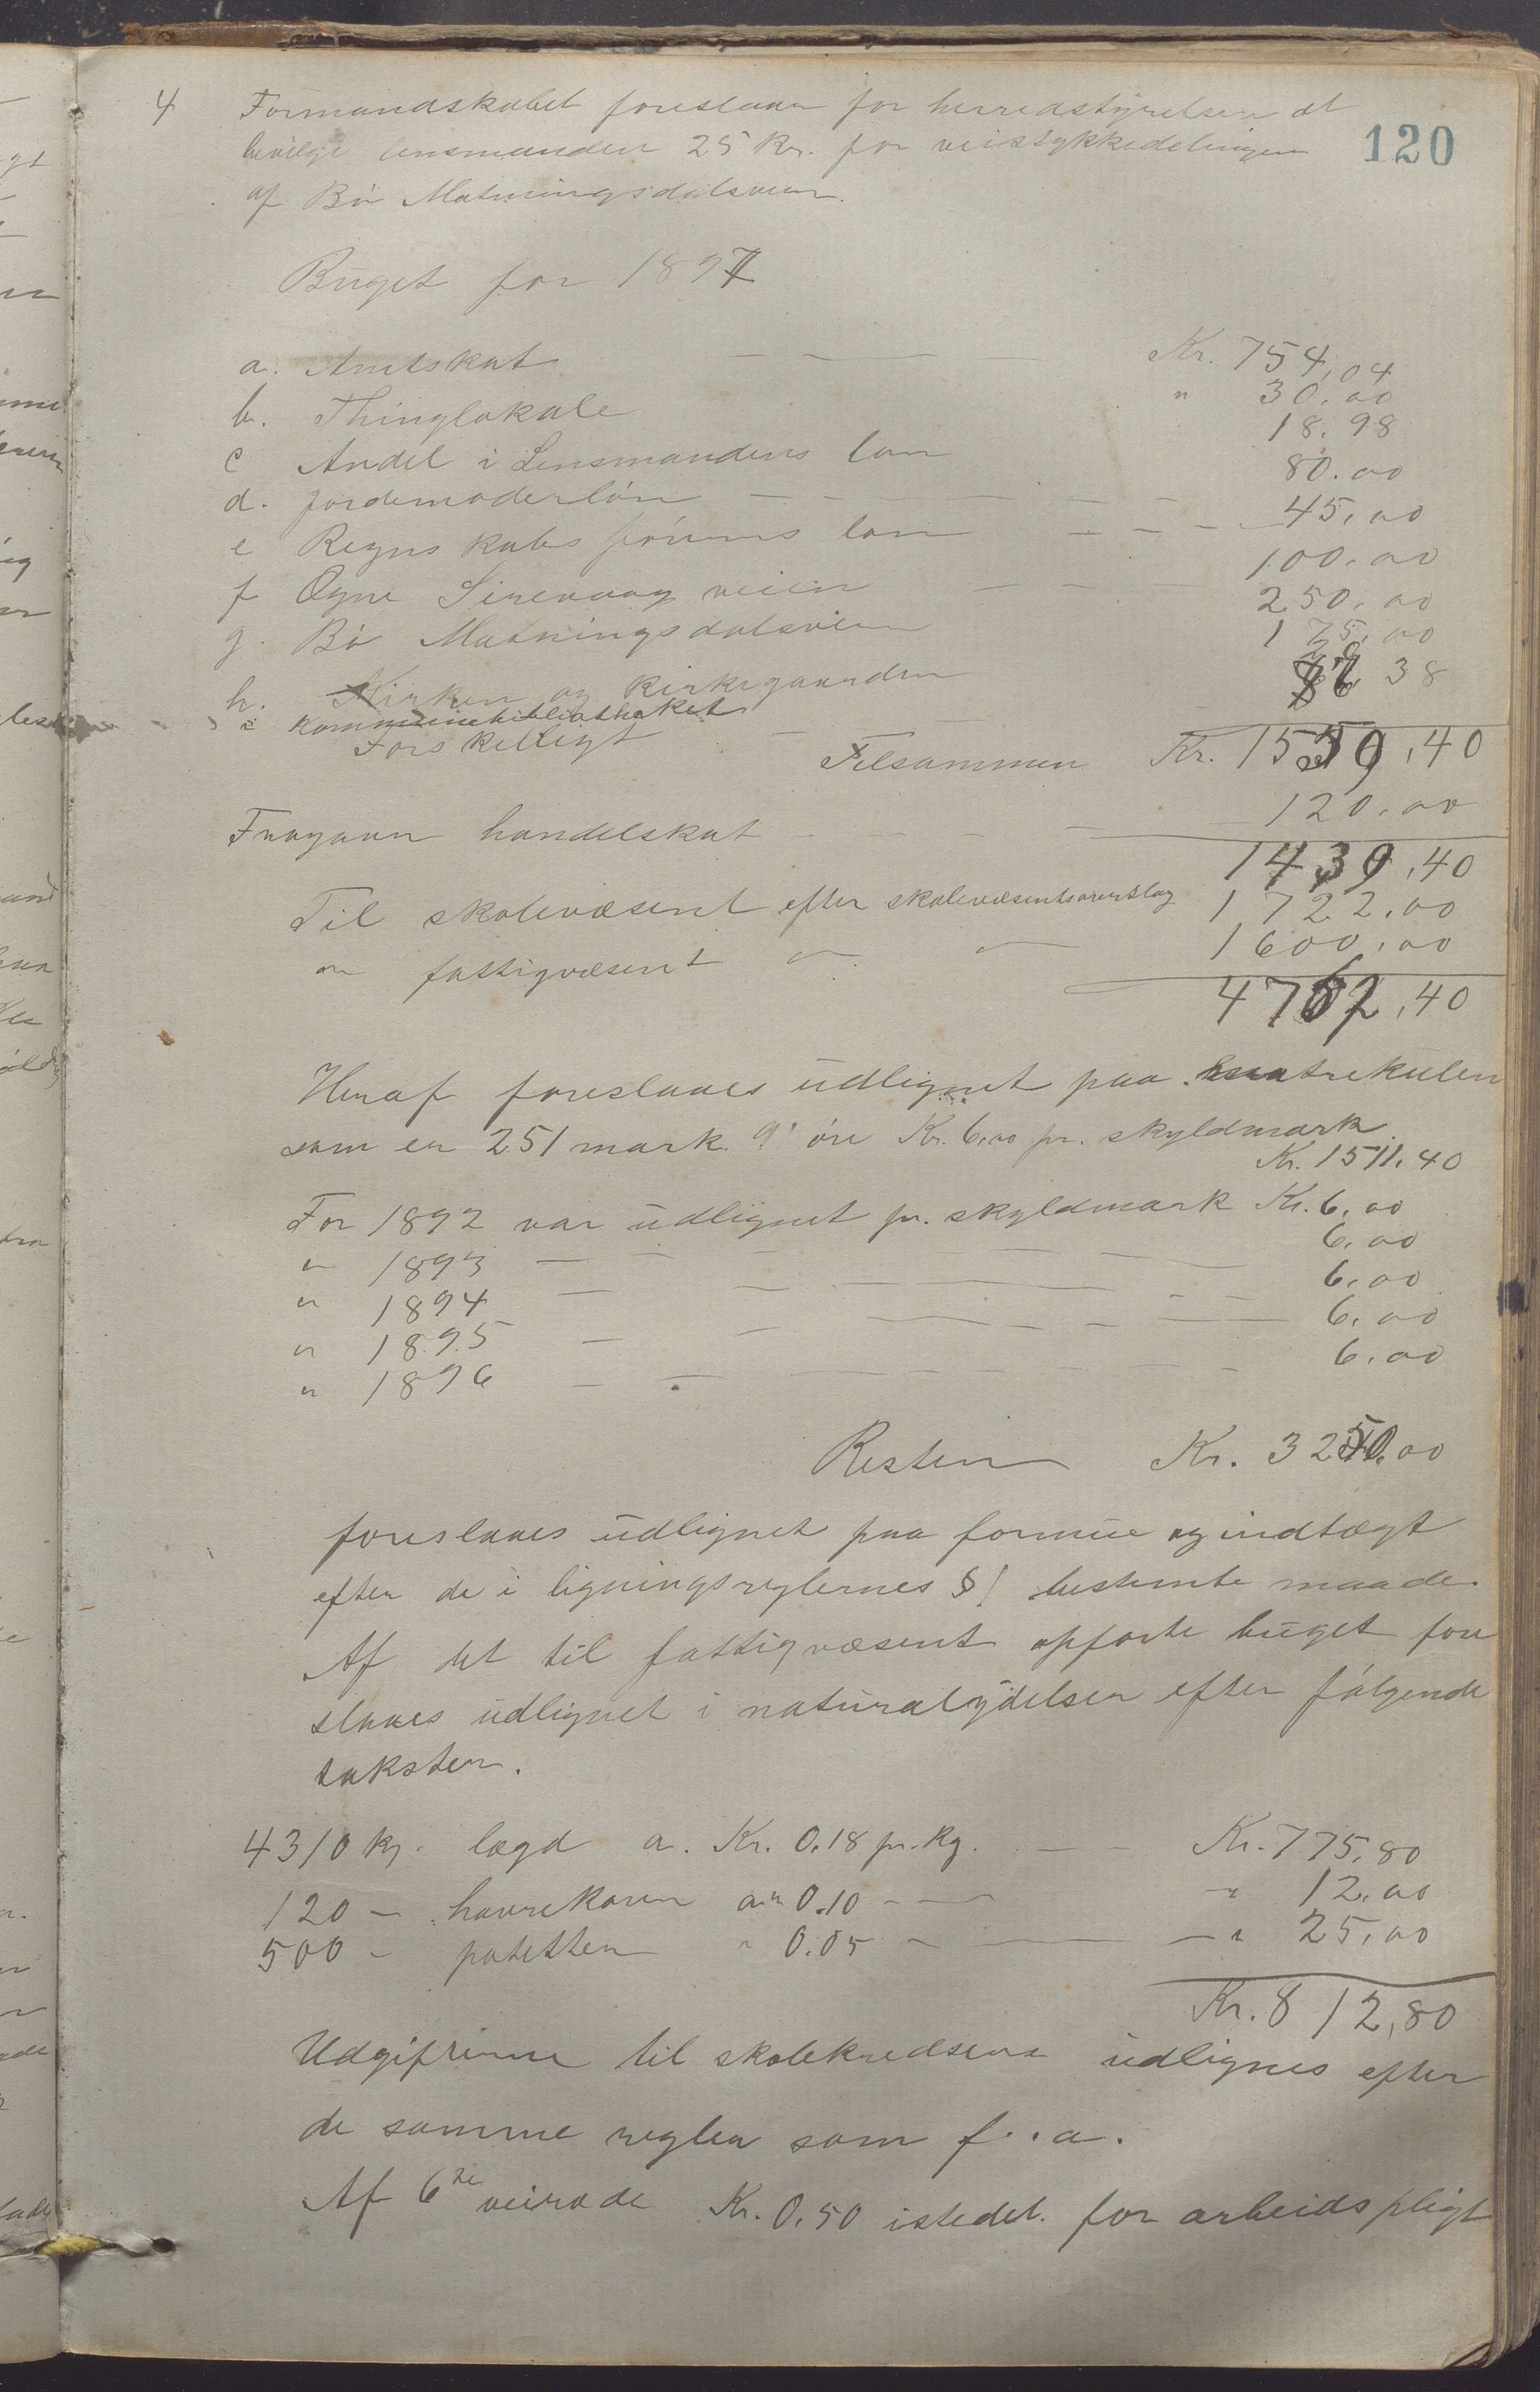 120
4 Formandskabet foreslaar for herredstyrelsen at
bevilge lensmanden 25 Kr. for veistykkedelingen
af Bö Matningsdalsveien.
Buget for 1897
a. Amtskat Kr. 754,04
b. Thinglokale " 30,00
c Andel i Lensmandens lön 18.98
d. jordemoderlön 80.00
e Regnskabsförerens lön 45,00
f Ogne Sirevaag veien 100.00
g. Bö Matningsdalsveien 250,00
h. Kirken og Kirkegaarden 175,00
i Kommunebibliotheket 20
Forskelligt 38
Tilsammen Kr. 1559,40
Fragaar handelskat 120,00
1439,40
Til skolevæsenet efter skolevæsensoverslag 1722,00
" fattigvæsenet " " 1600,00
4762,40
Heraf foreslaaes udlignet paa matrikulen
som er 251 mark 91 öre Kr. 6,00 pr. skyldmark
Kr. 1511,40
For 1892 var udlignet pr. skyldmark Kr. 6,00
" 1893 — — — — 6,00
" 1894 — — — — 6,00
" 1895 — — — — 6,00
" 1896 — — — — 6,00
Resten Kr. 3250,00
foreslaaes udlignet paa formue og indtægt
efter de i ligningsreglernes § 1 bestemte maade.
Af det til fattigvæsenet opförte buget fore
slaaes udlignet i naturalydelser efter fölgende
takster.
4310 kg. lægd a. Kr. 0.18 pr. kg. Kr. 775,80
120 — havrekorn a " 0.10 — — " 12,00
500 — poteter " 0.05 — — " 25,00
Kr. 812,80
Udgifterne til skolekredsene udlignes efter
de samme regler som f. a.
Af 6te veirode Kr. 0,50 istedet for arbeidspligt